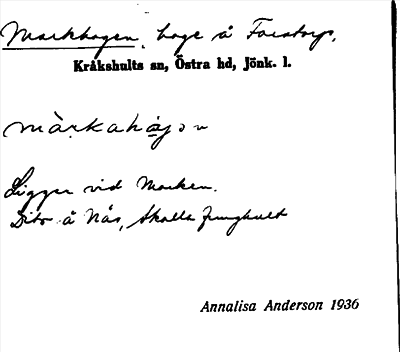 Markhagen, hage å Farstorp,
Kråkshults sn, Östra hd, Jönk. l.
màrkahájən
Ligger vid Marken.
Dito å Nås, Skalla ljunghult
Annalisa Anderson 1936